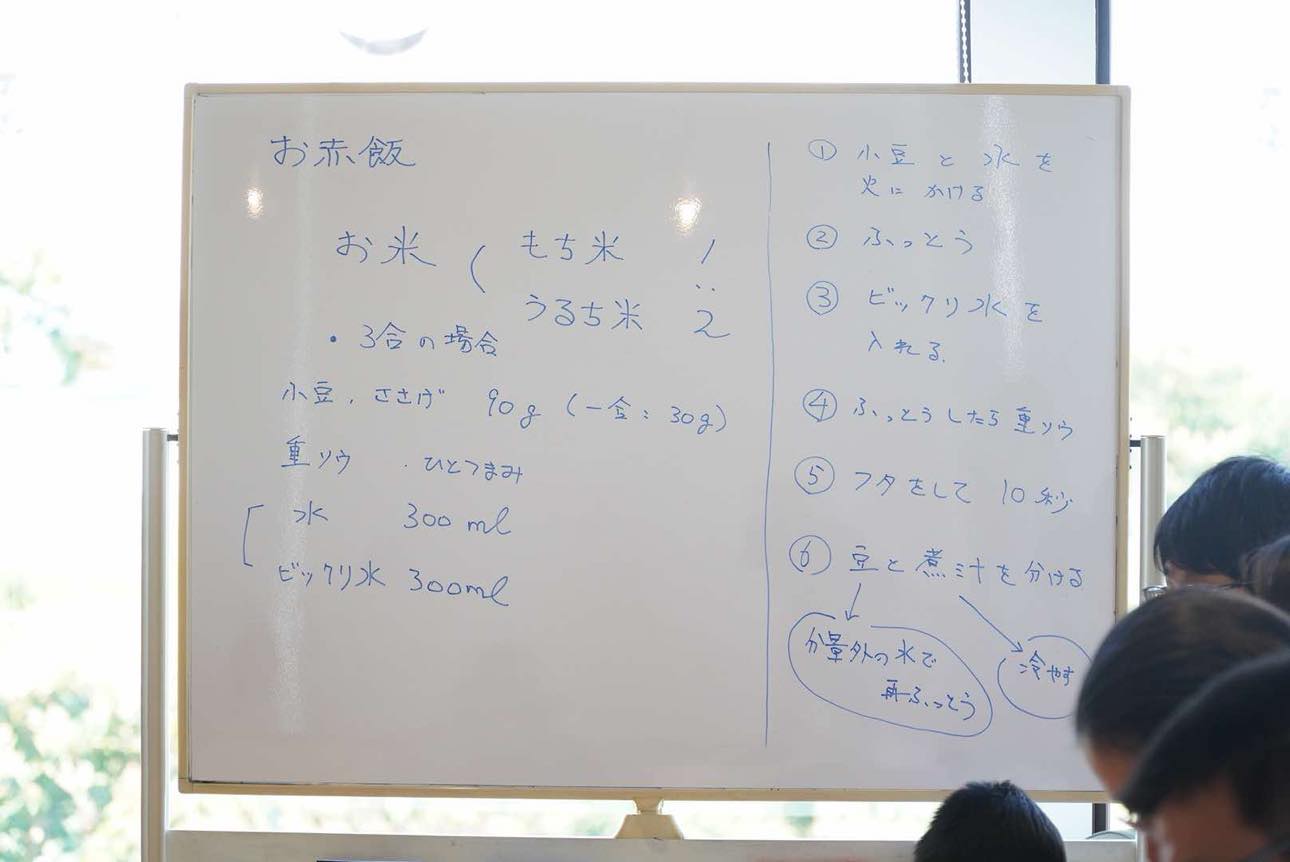 お赤飯
お米 ( もち米 1
:
うるち米 2
・3合の場合
小豆、ささげ 90g (一合:30g)
重ソウ ・ひとつまみ
水 300ml
ビックリ水 300ml
① 小豆と水を
火にかける
② ふっとう
③ ビックリ水を
入れる。
④ ふっとうしたら重ソウ
⑤ フタをして 10秒
⑥ 豆と煮汁を分ける
分量外の水で
再ふっとう
冷やす